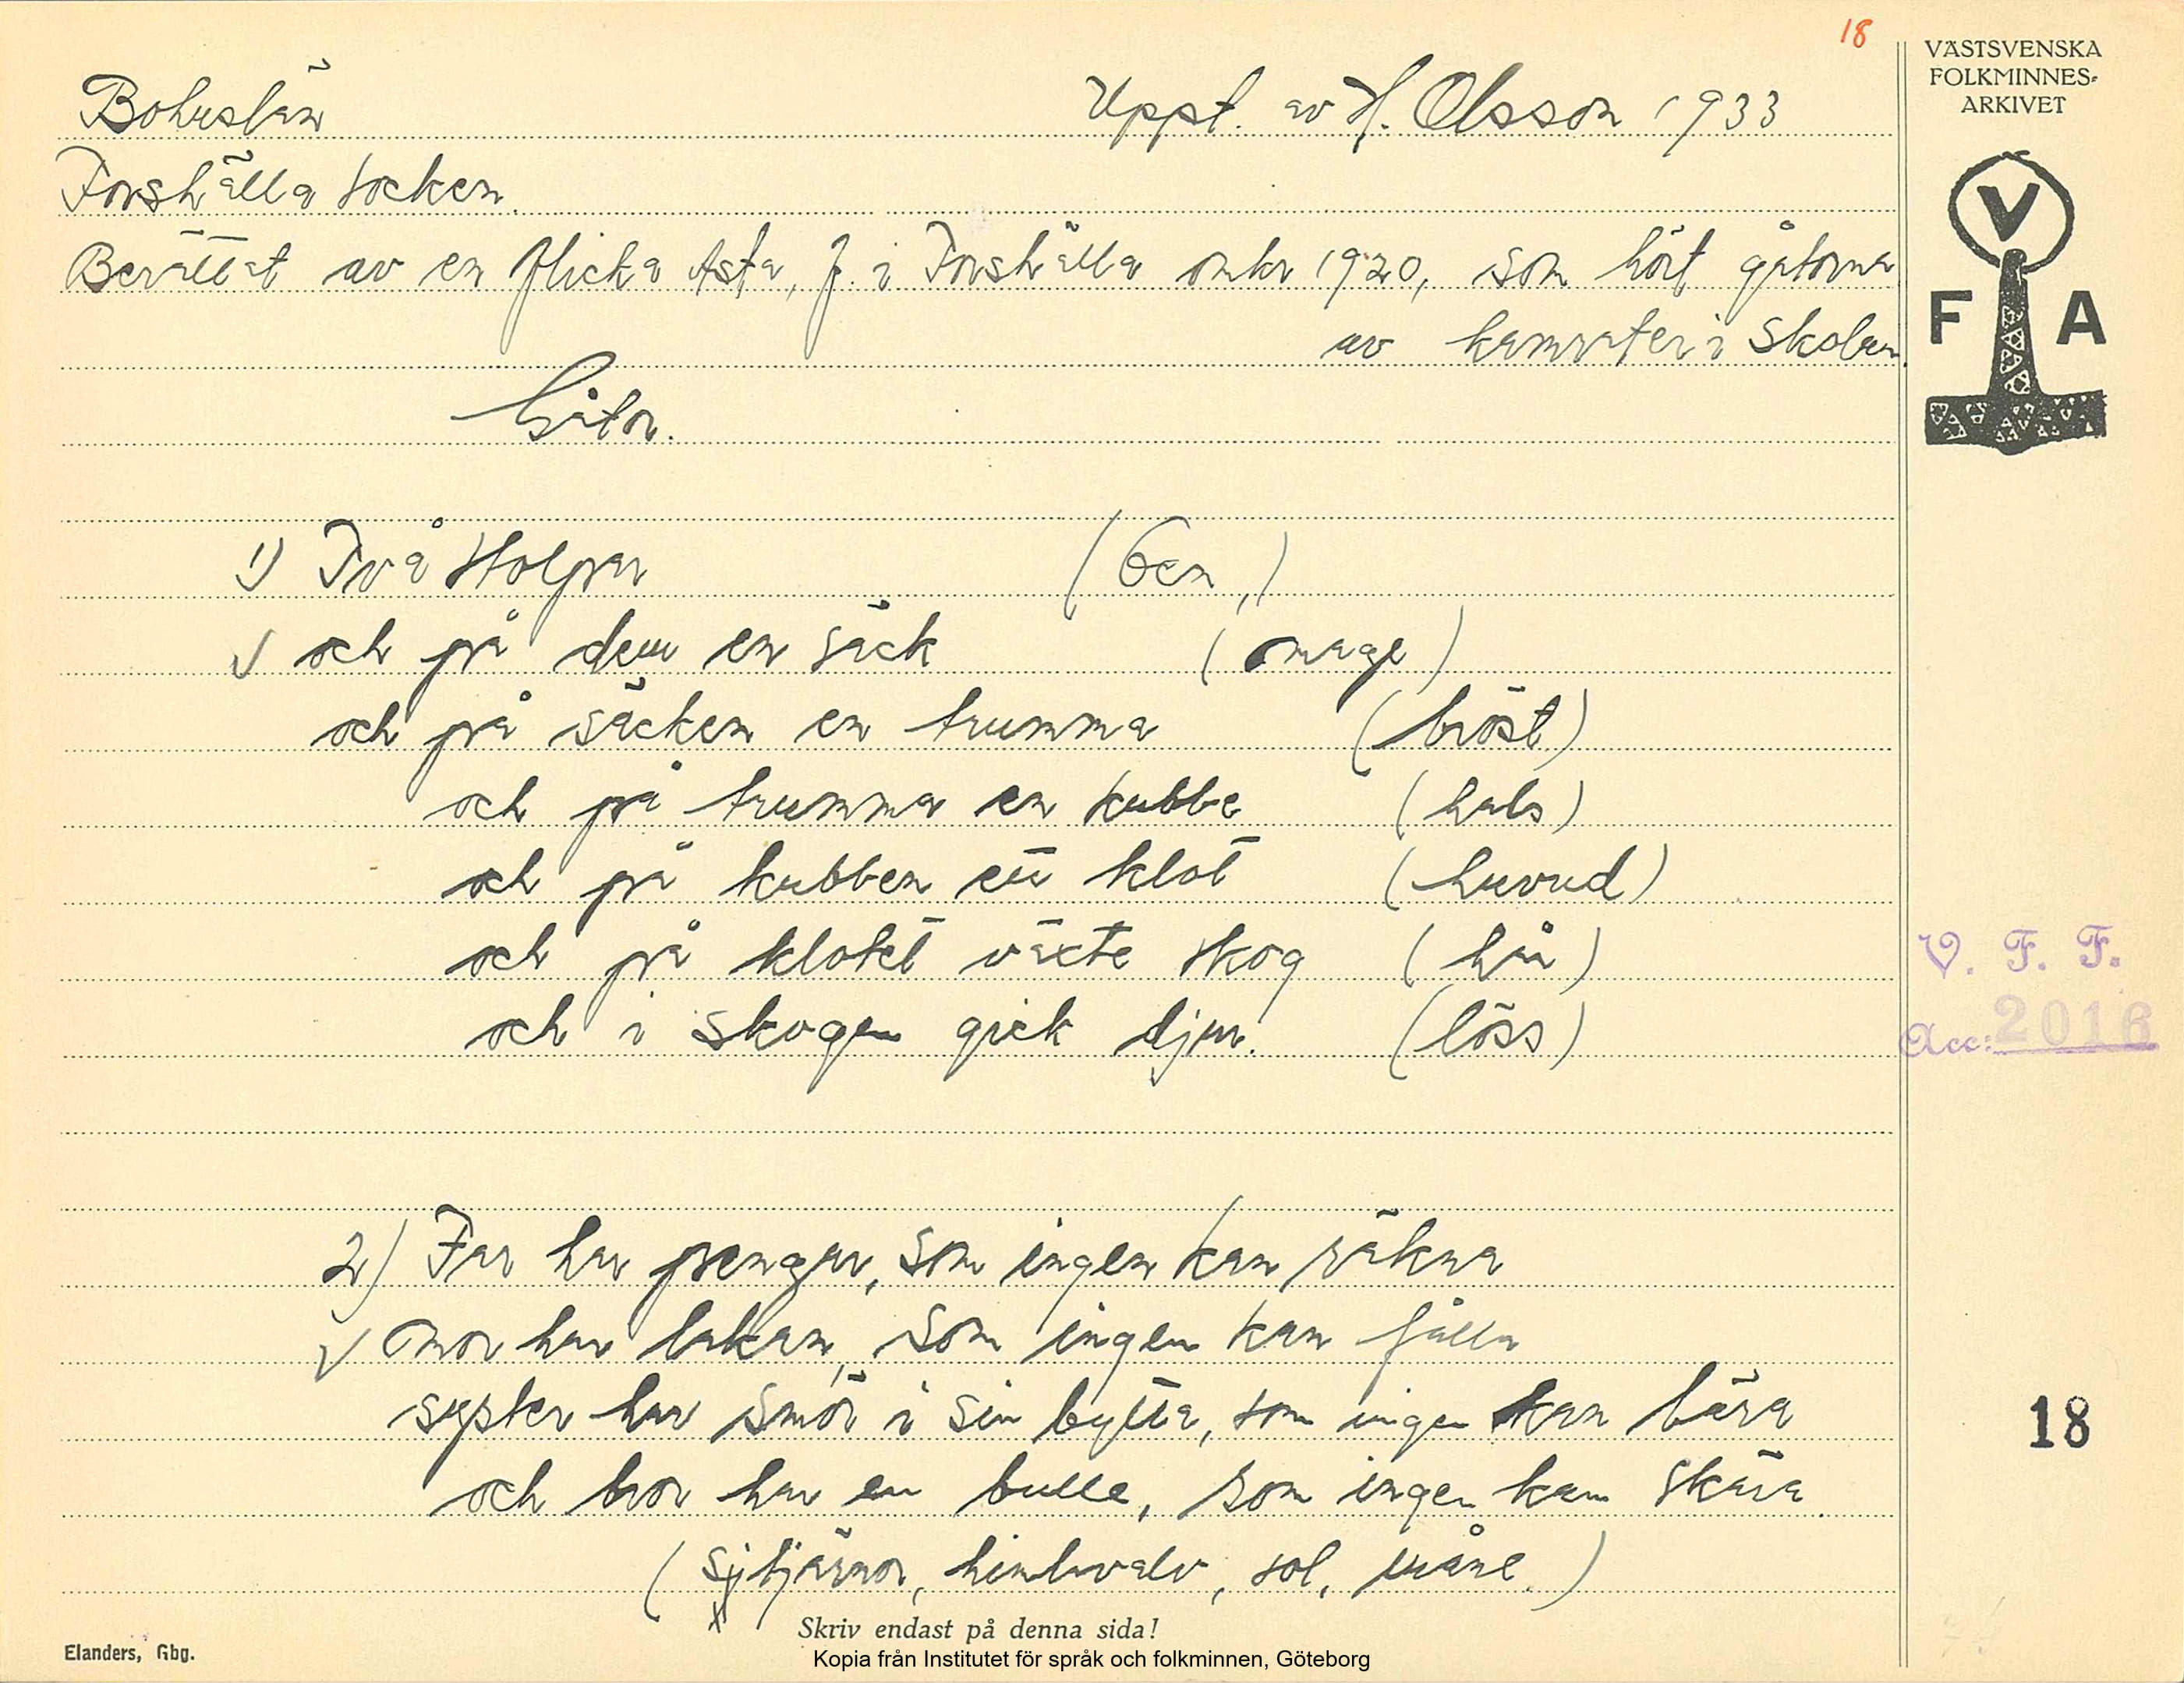 18
VÄSTSVENSKA
FOLKMINNES-
ARKIVET
V
F A
Bohuslän Uppt. av H. Olsson 1933
Forshälla socken.
Berättat av en flicka Asta, J. i Forshälla omkr 1920, som hört gåtorna
av kamrater i skolan.
Gåtor.
1) Två stolpar (ben,)
och på dem en säck (mage)
och på säcken en trumma (bröst)
och på trumma en kubbe (hals)
och på kubben ett klot (huvud)
och på klotet växte skog (hår)
och i skogen gick djur. (löss)
V. F. F.
Acc: 2016
2) Far har pengar, som ingen kan räkna
mor har lakan, som ingen kan fålla
syster har smör i sin bytta, som ingen kan bära
och bror har en bulle, som ingen kan skära.
(stjärnor, himlavalv, sol, måne.)
18
Skriv endast på denna sida!
Elanders, Gbg.
Kopia från Institutet för språk och folkminnen, Göteborg